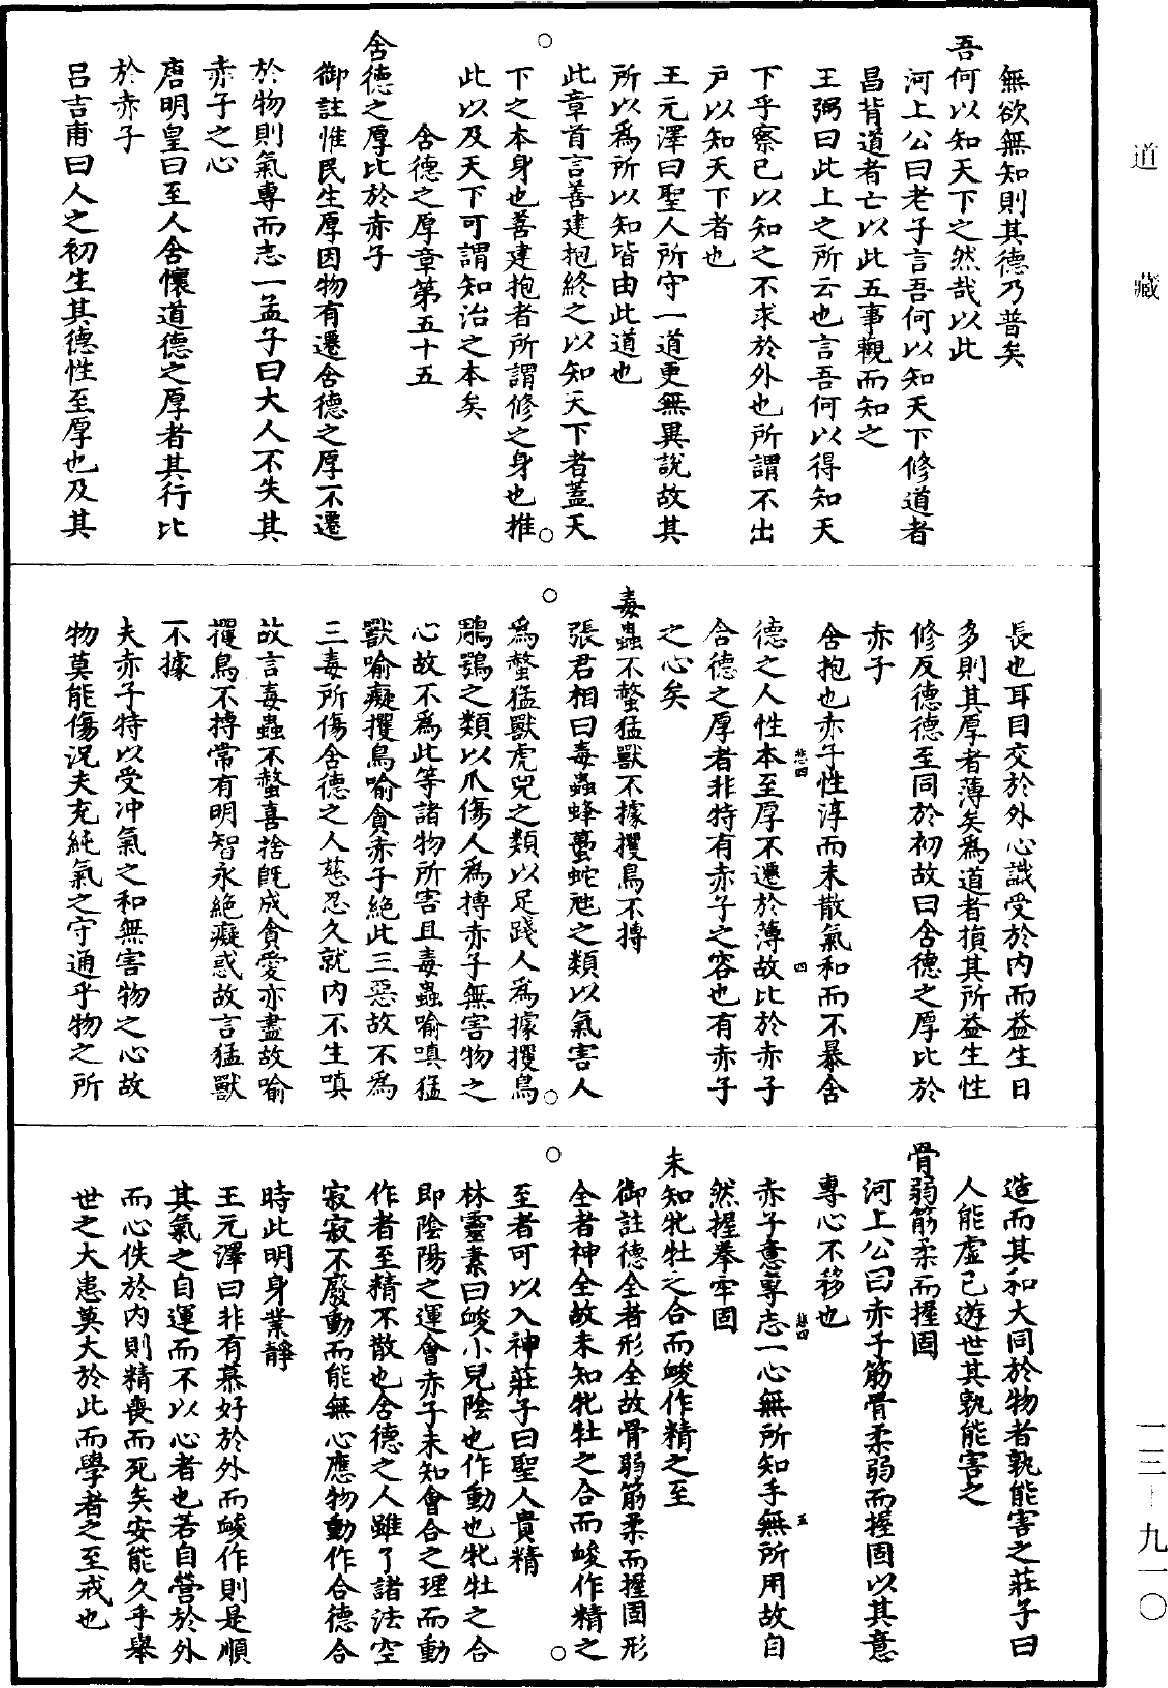 道藏
無欲無知則其德乃普矣
吾何以知天下之然哉以此
河上公曰老子言吾何以知天下修道者
昌背道者亡以此五事觀而知之
王弼曰此上之所云也言吾何以得知天
下乎察己以知之不求於外也所謂不出
戶以知天下者也
王元澤曰聖人所守一道更無異說故其
所以爲所以知皆由此道也
此章首言善建抱終之以知天下者蓋天
下之本身也善建抱者所謂修之身也推
此以及天下可謂知治之本矣
含德之厚章第五十五
含德之厚比於赤子
御註惟民生厚因物有遷含德之厚不遷
於物則氣專而志一孟子曰大人不失其
赤子之心
唐明皇曰至人含懷道德之厚者其行比
於赤子
呂吉甫曰人之初生其德性至厚也及其
長也耳目交於外心識受於內而益生日
多則其厚者薄矣爲道者損其所益生性
修反德德至同於初故曰含德之厚比於
赤子
含抱也赤子性淳而未散氣和而不暴含
德之人性本至厚不遷於薄故比於赤子
含德之厚者非特有赤子之容也有赤子
之心矣
毒蟲不螫猛獸不據攫鳥不搏
張君相曰毒蟲蜂蠆蛇虺之類以氣害人
爲螫猛獸虎兕之類以足踐人爲據攫鳥
鵰鶚之類以爪傷人爲搏赤子無害物之
心故不爲此等諸物所害且毒蟲喻嗔猛
獸喻癡攫鳥喻貪赤子絕此三惡故不爲
三毒所傷含德之人慈忍久就內不生嗔
故言毒蟲不螫喜捨既成貪愛亦盡故喻
攫鳥不搏常有明智永絕癡惑故言猛獸
不據
夫赤子特以受冲氣之和無害物之心故
物莫能傷況夫充純氣之守通乎物之所
造而其和大同於物者孰能害之莊子曰
人能虛己遊世其孰能害之
骨弱筋柔而握固
河上公曰赤子筋骨柔弱而握固以其意
專心不移也
赤子意專志一心無所知手無所用故自
然握拳牢固
未知牝牡之合而峻作精之至
御註德全者形全故骨弱筋柔而握固形
全者神全故未知牝牡之合而峻作精之
至者可以入神莊子曰聖人貴精
林靈素曰峻小兒陰也作動也牝牡之合
即陰陽之運會赤子未知會合之理而動
作者至精不散也含德之人雖了諸法空
寂寂不廢動而能無心應物動作合德合
時此明身業靜
王元澤曰非有慕好於外而峻作則是順
其氣之自運而不以心者也若自營於外
而心佚於內則精喪而死矣安能久乎舉
世之大患莫大於此而學者之至戒也
一三-九一〇